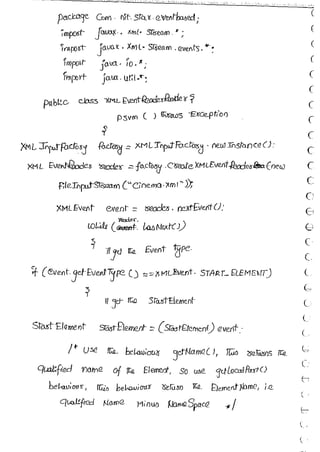 package Com. nit. Stax. eventbased;
import javax. xml. Stream. *;
import javax. Xml. Stream. events. *;
import java. io. *;
import java. util. *;
public class XML EventReaderReader {
psvm ( ) throws Exception
{
XML InputFactory factory = XML InputFactory. newInstance();
XML EventReader reader = factory. create XMLEventReader (new
FileInputStream ("Cinema.xml"));
XMLEvent event = reader. nextEvent();
reader.
while ( hasNext())
{ // get the Event type.
if (event. getEventType () == XMLEvent. START_ELEMENT)
{
// get the StartElement
Start Element startElement = (StartElement) event;
/* Use the behaviour getName(), this returns the
qualified name of the Element, so use getLocalPart()
behaviour, this behaviour return the ElementName, i.e
qualified Name Minus NameSpace */